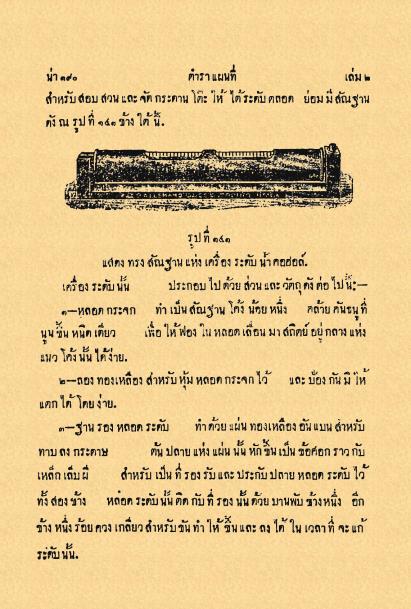 น่า ๑๙๐ ตำราแผนที่ เล่ม ๒
สำหรับ สอบ สวน และ จัด กระดาน โต๊ะ ให้ ได้ ระดับ ตลอด ย่อม มี สัณฐาน
ดัง ณ รูป ที่ ๑๔๑ ข้าง ใต้ นี้.
รูป ที่ ๑๔๑
แสดง ทรง สัณฐาน แห่ง เครื่อง ระดับ น้ำ คอฮอล์.
เครื่อง ระดับ นั้น ประกอบ ไป ด้วย ส่วน และ วัตถุ ดัง ต่อ ไป นี้:—
๑—หลอด กระจก ทำ เป็น สัณฐาน โค้ง น้อย หนึ่ง คล้าย คันธนู ที่
นูน ขึ้น หนิด เดียว เพื่อ ให้ ฟอง ใน หลอด เลื่อน มา สถิตย์ อยู่ กลาง แห่ง
แนว โค้ง นั้น ได้ ง่าย.
๒—ลอง ทองเหลือง สำหรับ หุ้ม หลอด กระจก ไว้ และ ป้อง กัน มิ ให้
แตก ได้ โดย ง่าย.
๓—ฐาน รอง หลอด ระดับ ทำ ด้วย แผ่น ทองเหลือง อัน แบน สำหรับ
ทาบ ลง กระดาษ ต้น ปลาย แห่ง แผ่น นั้น หัก ขึ้น เป็น ข้อศอก ราว กับ
เหล็ก เล็บ ผี สำหรับ เป็น ที่ รอง รับ และ ประกับ ปลาย หลอด ระดับ ไว้
ทั้ง สอง ข้าง หลอด ระดับ นั้น ติด กับ ที่ รอง นั้น ด้วย บานพับ ข้าง หนึ่ง อีก
ข้าง หนึ่ง ร้อย ควง เกลียว สำหรับ ขัน ทำ ให้ ขึ้น และ ลง ได้ ใน เวลา ที่ จะ แก้
ระดับ นั้น.